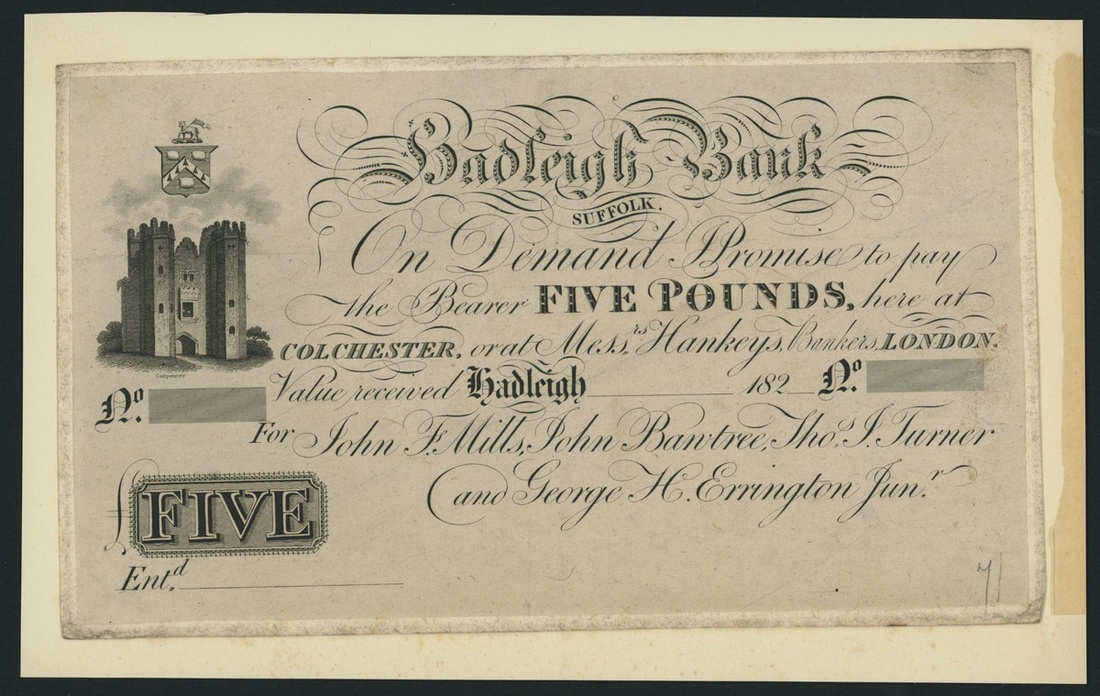 Hadleigh Bank
SUFFOLK.
On Demand I Promise to pay
the Bearer FIVE POUNDS, here at
COLCHESTER, or at Mess.rs Hankeys, Bankers, LONDON.
Carpenter
Value received Hadleigh 182
No.
No.
For John F. Mills, John Bawtree, Thos. J. Turner
and George H. Errington Jun.r
£ FIVE
Ent.d